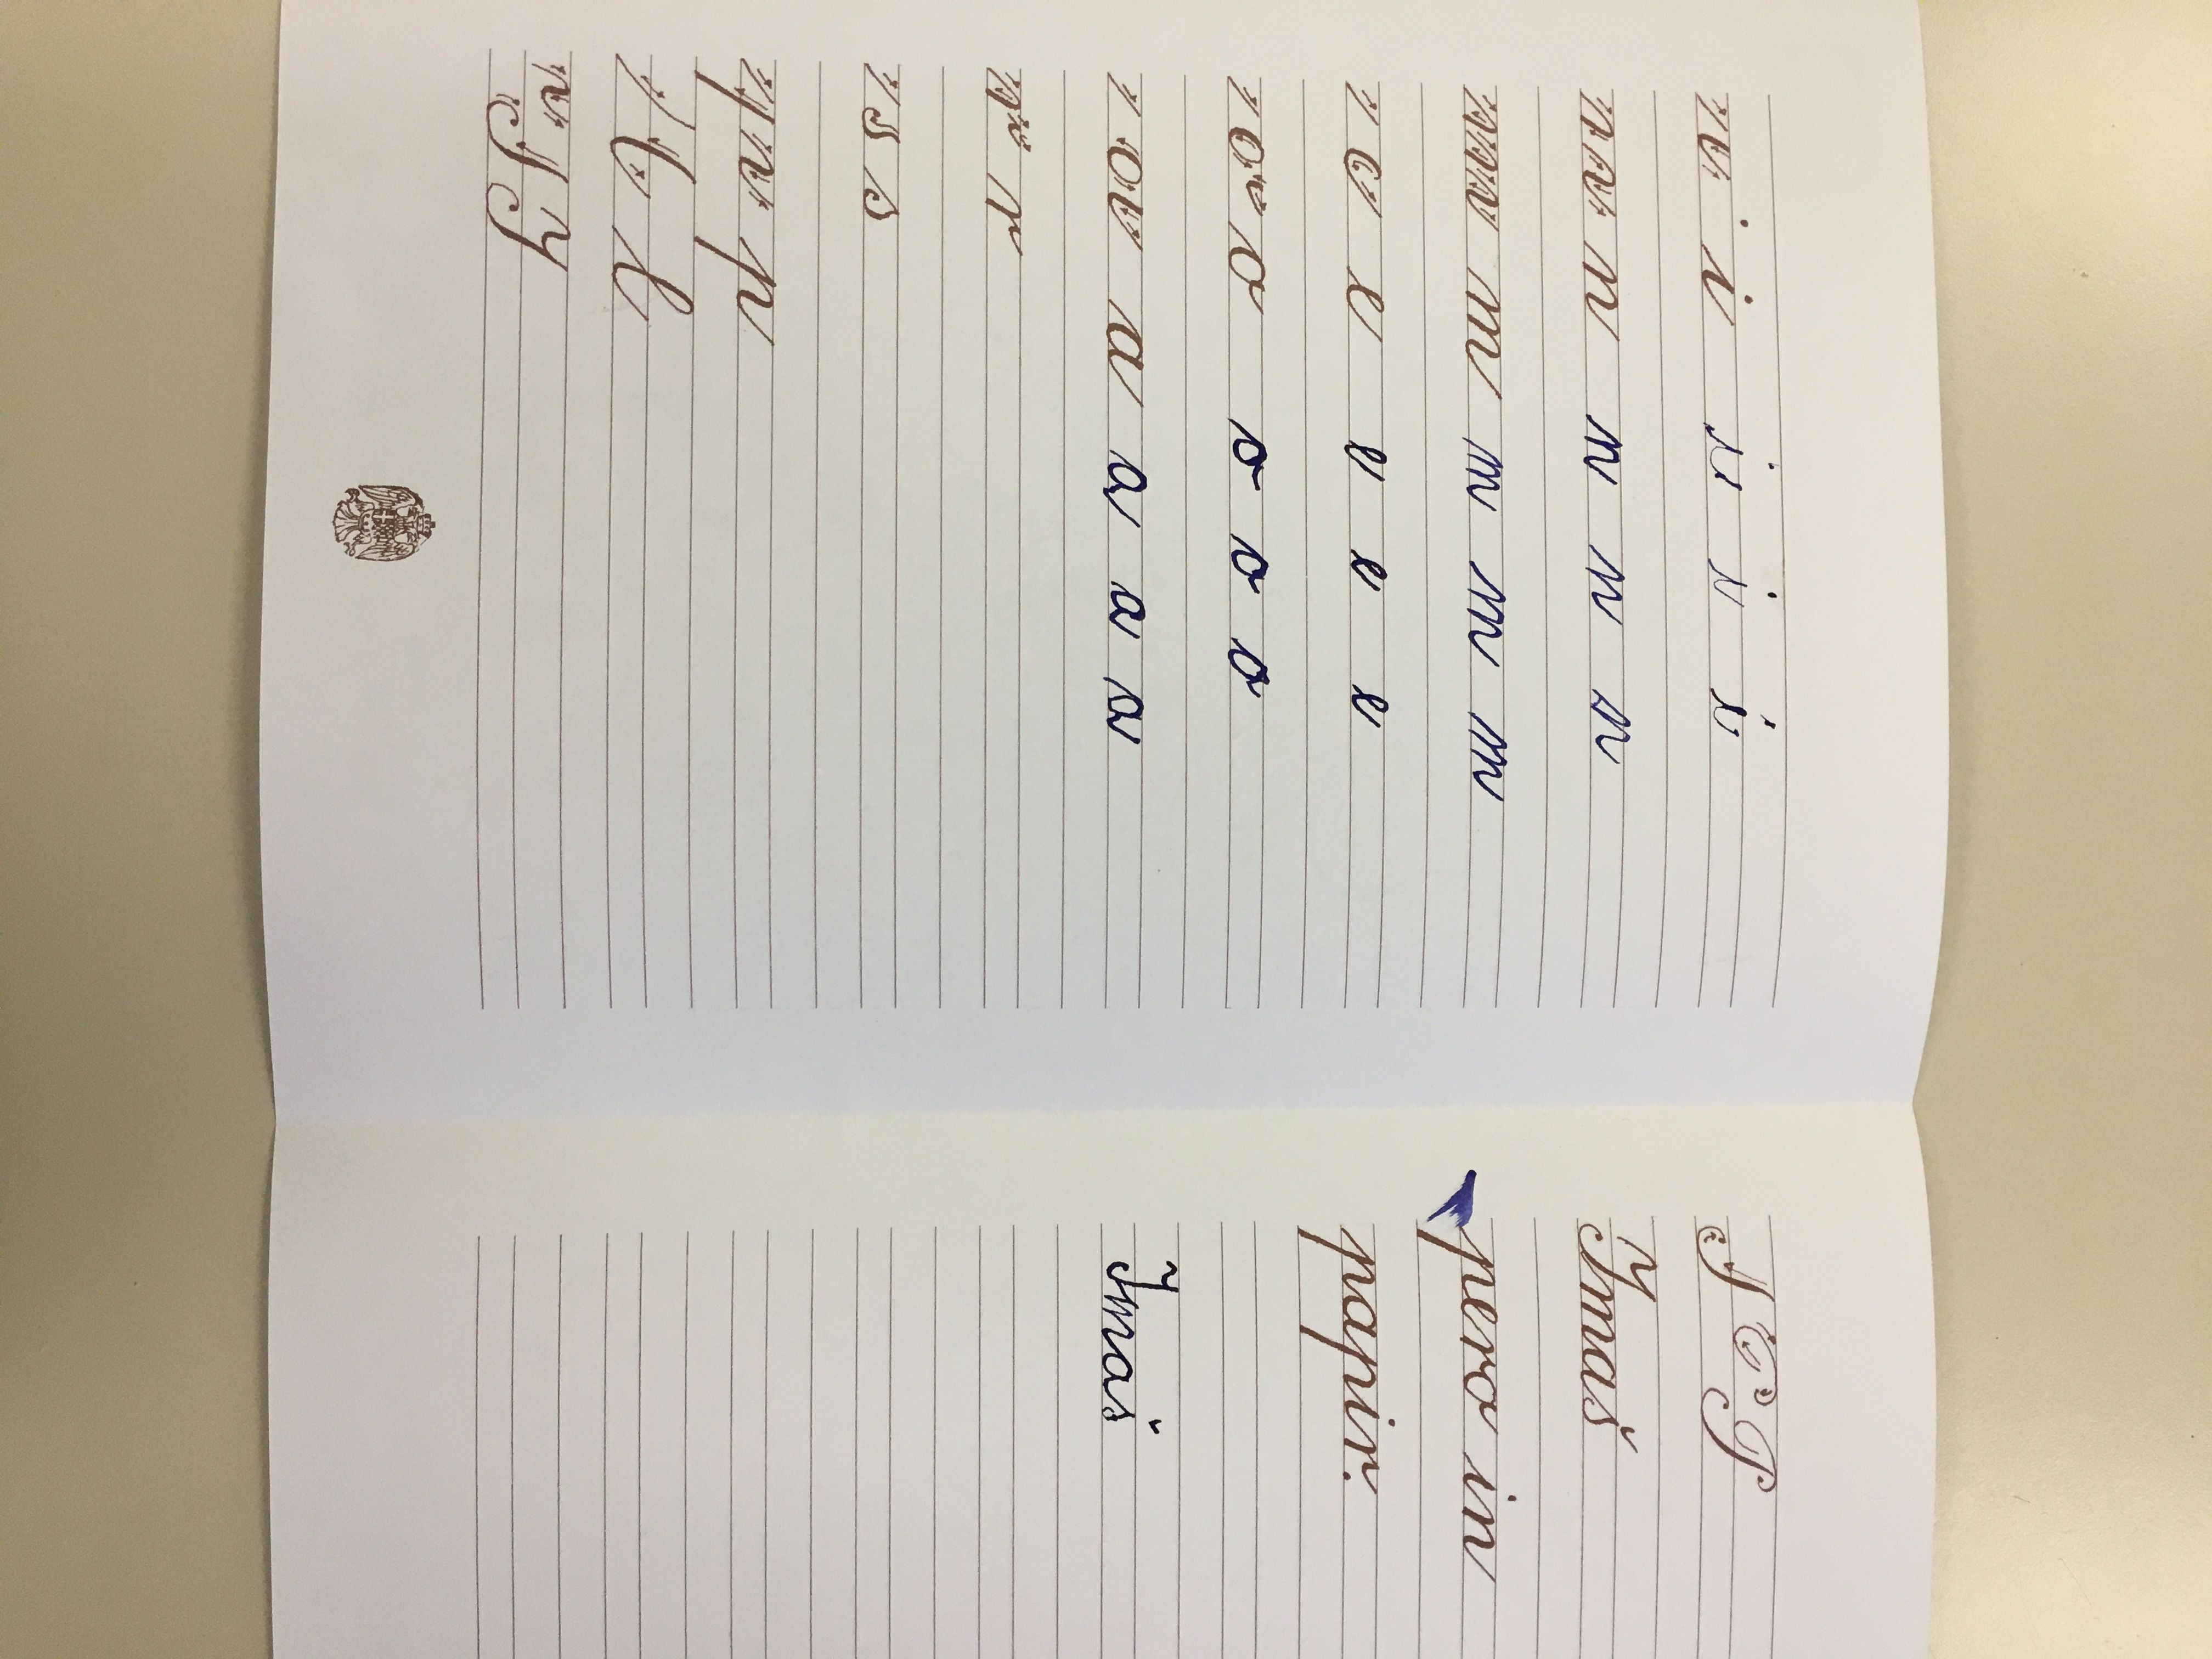 i i i i i
n n n n n
m m m m m
e e e e e
o o o o o
a a a a a
r r
s s
p p
I I
P
Imaš
pero in
papir.
Imaš